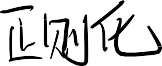 正则化